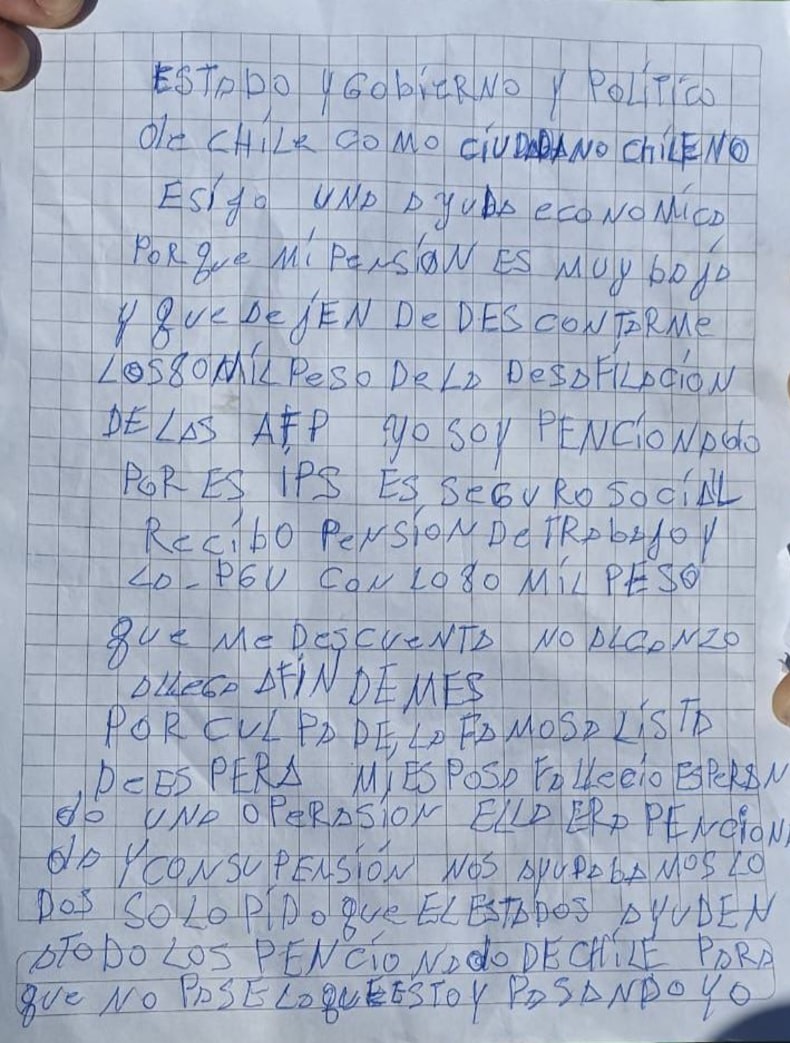 ESTADO Y GObiERNO Y POLÍTICO
de CHILE COMO CIUDADANO CHILENO
ESIJO UNA AYUDA ECONOMICA
PORque Mi PENSION ES MUY bAJA
Y que DEJEN De DESCONTARMe
LOS 80 MIL PESO De LA DESAFILACION
DE LAS AFP YO SOY PENCIONAdo
POR ES IPS ES SEGURO SOCIAL
RECIBO PENSION De TRAbAJO Y
LA - PGU CON LO 80 MIL PESO
que Me DESCUENTA NO ALCANZO
A LLEGA A FIN DE MES
POR CULPA DE, LA FAMOSA LISTA
De ESPERA MI ESPOSA FALLECIO ESPERAN
do UNA OPERASION ELLA ERA PENCION
dA Y CON SU PENSION NOS AYUDAbAMOS LO
DOS SOLO PIDO que EL ESTADOS AYUDEN
A TODO LOS PENCIONADO DE CHILE PARA
que NO PASE LO QUE ESTOY PASANDO YO